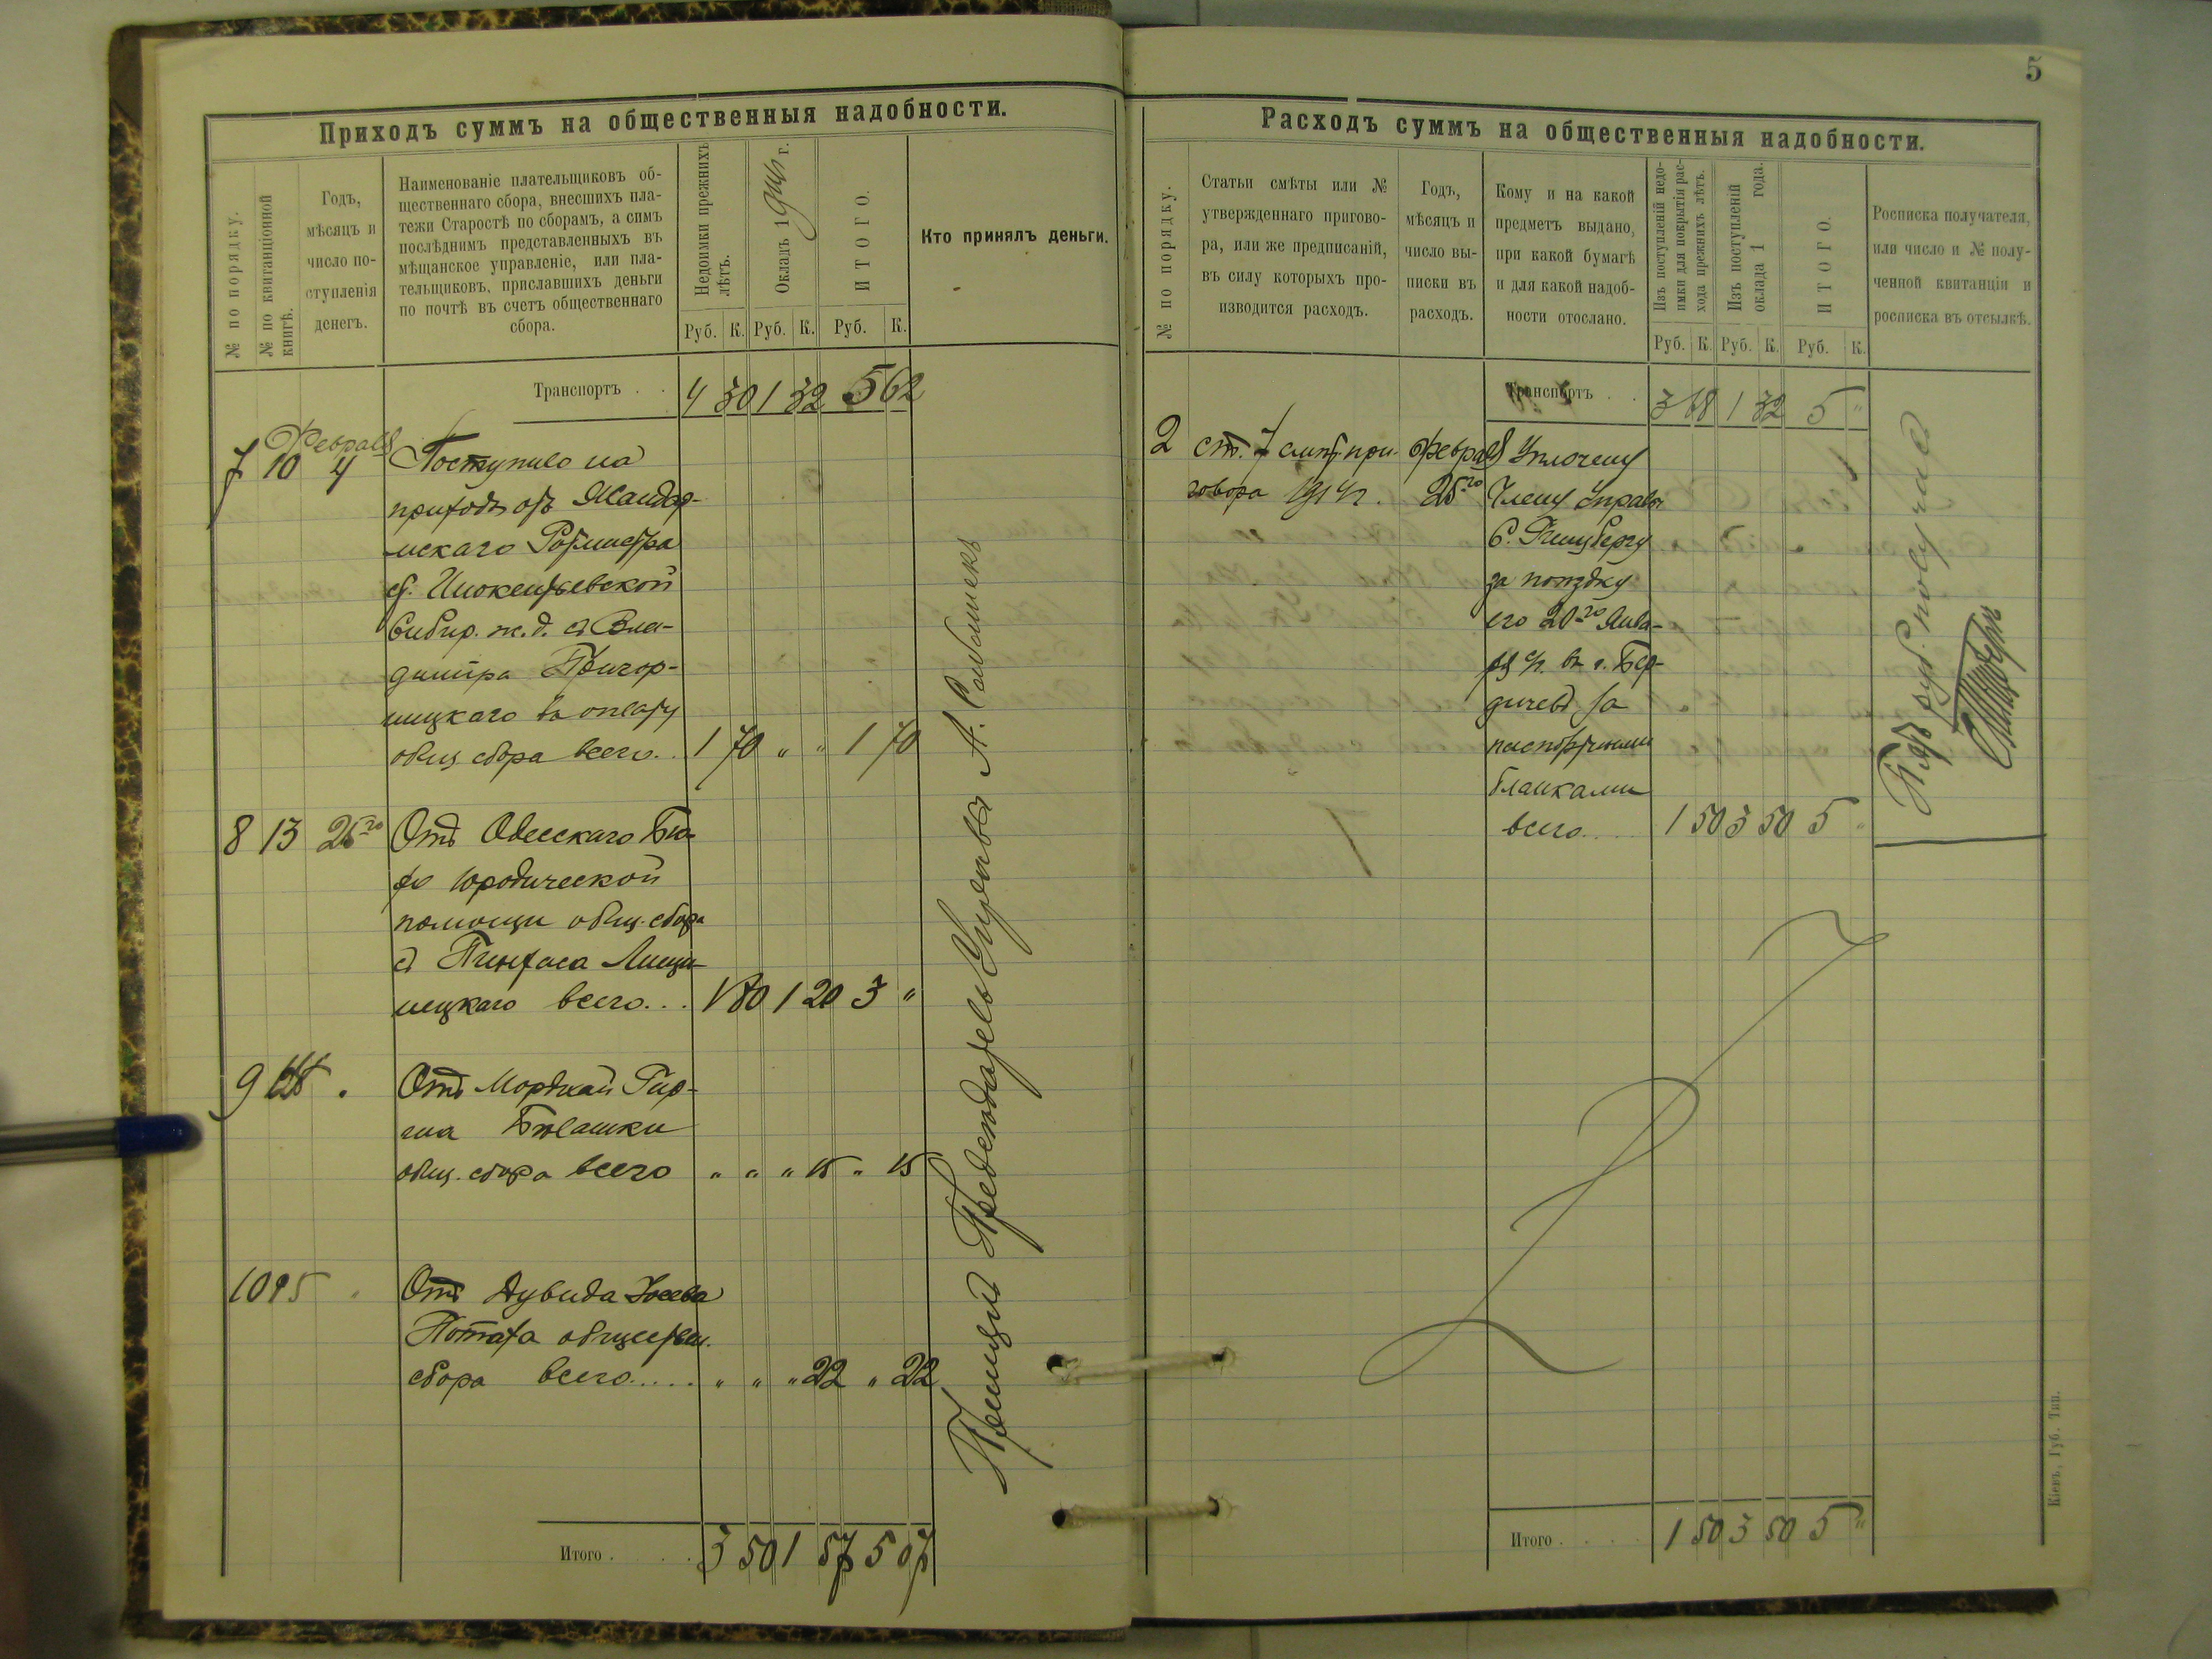 5
Приходъ суммъ на общественныя надобности.
№ по порядку.
№ по квитанціоной книгѣ.
Годъ,
мѣсяцъ и
число по-
ступленія
денегъ.
Наименованіе плательщиковъ об-
щественнаго сбора, внесшихъ пла-
тежи Старостѣ по сборамъ, а симъ
послѣднимъ представленныхъ въ
мѣщанское управленіе, или пла-
тельщиковъ, приславшихъ деньги
по почтѣ въ счетъ общественнаго
сбора.
Недоимки прежнихъ лѣтъ.
Окладъ 1914 г.
ИТОГО.
Кто принялъ деньги.
Руб. К. Руб. К. Руб. К.
Транспортъ . . 4 30 1 32 5 62
Февраля
7 10 4 Поступило на
приходъ отъ Жандар-
мскаго Ротмистра
ст. Инокентьевской
Сибир. ж. д. съ Вла-
диміра
ницкаго въ оплату
общ сбора всего.. 1 70 " " 1 70
8 13 25го Отъ Одесскаго Бю-
ро Юродической
помощи общ. сбора
съ Пинхаса Лищи-
нецкаго всего... 1 80 1 20 3 "
9 . Отъ Мордкаи
общ. сбора всего " " " 15 " 15
10 15 Отъ Дувида
обществен.
сбора всего..... " " " 22 " 22
Итого . . . . 3 50 1 57 5 07
Предсѣдатель Управы А.
Расходъ суммъ на общественныя надобности.
№ по порядку.
Статьи смѣты или №
утвержденнаго пригово-
ра, или же предписаній,
въ силу которыхъ про-
изводится расходъ.
Годъ,
мѣсяцъ и
число вы-
писки въ
расходъ.
Кому и на какой
предметъ выдано,
при какой бумагѣ
и для какой надоб-
ности отослано.
Изъ поступленій недо-
имки для покрытія рас-
хода прежнихъ лѣтъ.
Изъ поступленій
оклада 1 года.
ИТОГО.
Росписка получателя,
или число и № полу-
ченной квитанціи и
росписка въ отсылкѣ.
Руб. К. Руб. К. Руб. К.
Транспортъ . . 3 68 1 32 5 "
2 ст. 7 смѣт. при- Февраля Уплочену
говора 1914 г. 25го Члену Управы
С. Гинцбергу
за поѣздку
его 20го Янва-
ря с/г. въ г. Бер-
дичевъ за
паспортными
бланками
всего.... 1 50 3 50 5 "
Пять руб. получилъ
Итого . . . . 1 50 3 50 5 "
Кіевъ, Губ. Тип.